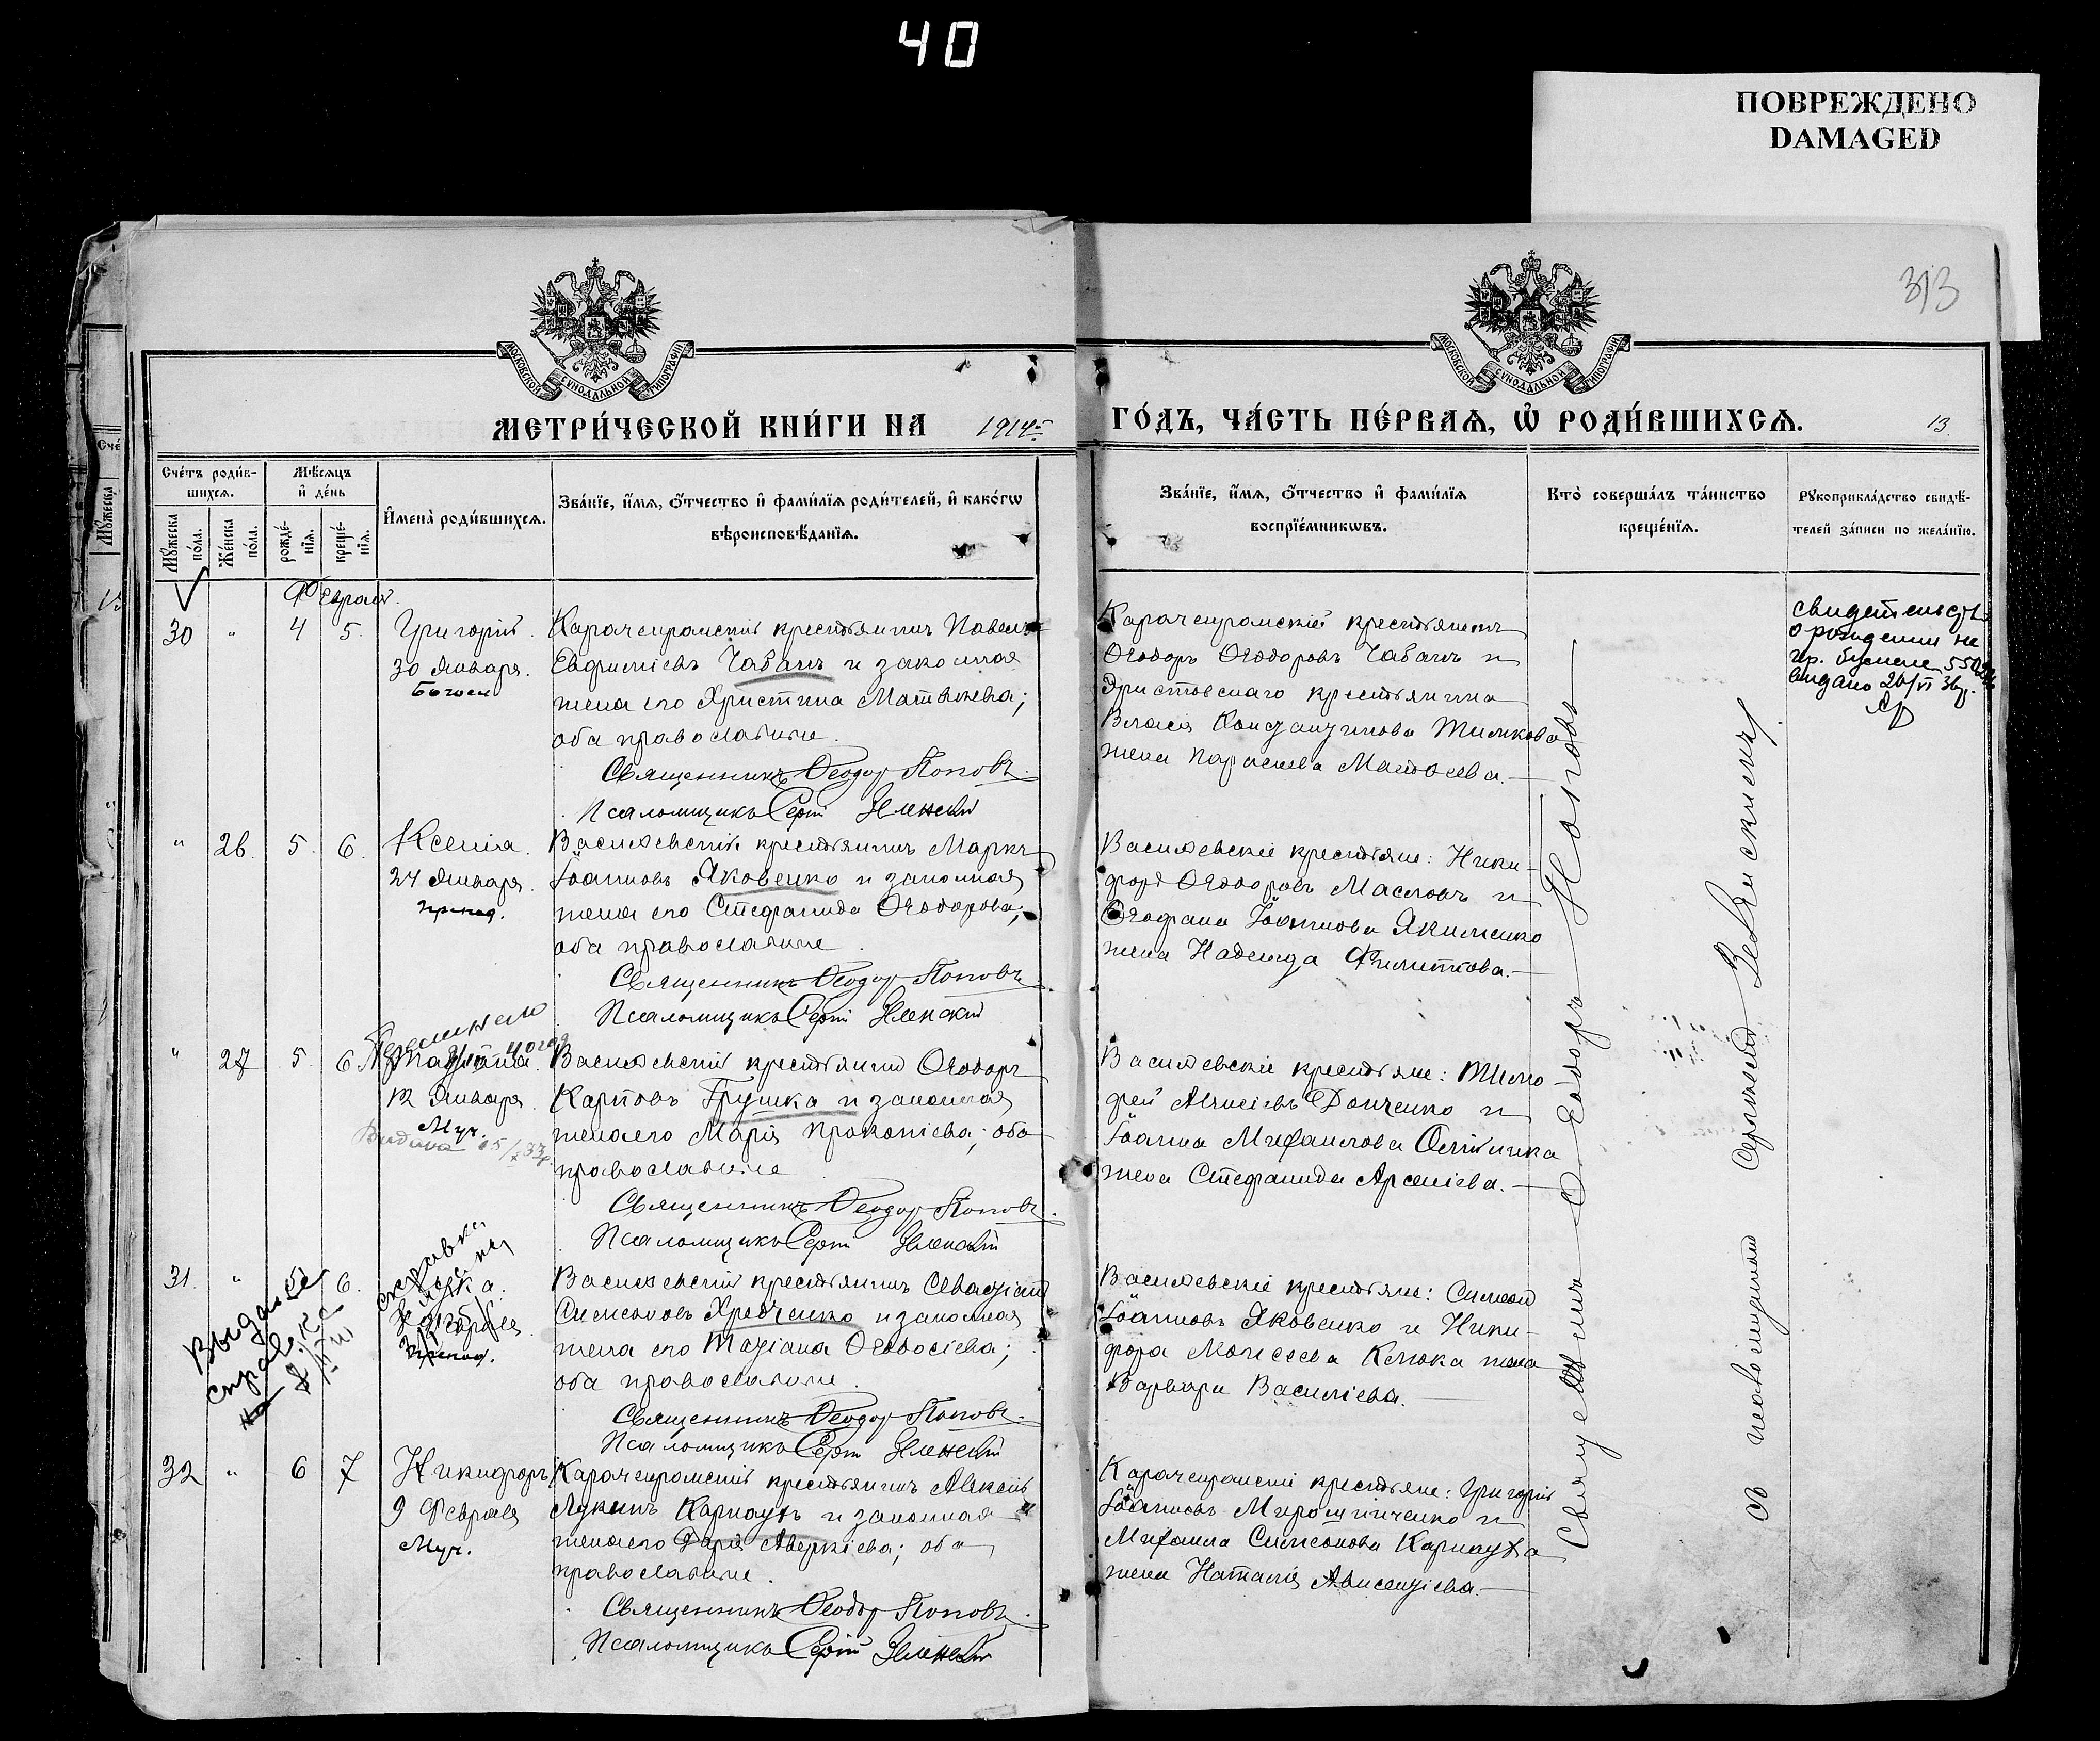 40
ПОВРЕЖДЕНО
DAMAGED
313
МОСКОВСКОЙ СѴНОДАЛЬНОЙ ТИПОГРАФІИ
МОСКОВСКОЙ СѴНОДАЛЬНОЙ ТИПОГРАФІИ
МЕТРИ́ЧЕСКОЙ КНИ́ГИ НА 1914
ГО́ДЪ, ЧА́СТЬ ПЕ́РВАѦ, Ѡ҆ РОДИ́ВШИХСѦ.
13.
Сче́тъ роди́в-
шихсѧ.
Мѣ́сѧцъ
и҆ де́нь
Мꙋ́жеска
по́ла.
Же́нска
по́ла.
рожде́-
нїѧ.
креще́-
нїѧ.
И҆мена̀ роди́вшихсѧ.
Зва́нїе, и҆́мѧ, ѻ҆́тчество и҆ фами́лїѧ роди́телей, и҆ како́гѡ
вѣроисповѣ́данїѧ.
Зва́нїе, и҆́мѧ, ѻ҆́тчество и҆ фами́лїѧ
воспрїе́мникѡвъ.
Кто̀ соверша́лъ та́инство
креще́нїѧ.
Рꙋкоприкла́дство свидѣ́-
телей за́писи по жела́нїю.
Февраль.
30 " 4 5. Григорій.
30 Января.
Богосл.
Карачекракскій крестьянинъ Павелъ
Евфиміевъ Чабанъ и законная
жена его Христина Матѳѣева;
оба православные.
Священникъ Ѳеодор Поповъ.
Псаломщикъ Сергій
Карачекракскій крестьянинъ
Ѳеодоръ Ѳеодоровъ Чабанъ и
крестьянина
Власія Тимкова
жена Параскева
свидетельств
о рождении на
гр. бумаге
выдано 26/VI 36г.
" 26. 5. 6. Ксенія.
24 Января.
препод.
Васильевскій крестьянинъ Маркъ
Іоанновъ Яковенко и законная
жена его Стефанида Ѳеодорова;
оба православные.
Священникъ Ѳеодор Поповъ.
Псаломщикъ Сергій
Васильевскіе крестьяне: Ники-
форъ Ѳеодоровъ Масловъ и
Ѳеофана Іоаннова Якименко
жена Надежда Филиппова.
" 27 5. 6. Татіана.
12 Января.
Муч.
Васильевскій крестьянинъ Ѳеодоръ
Карповъ Грушка и законная
жена его Марія Прокопіева; оба
православные
Священникъ Ѳеодор Поповъ.
Псаломщикъ Сергій
Васильевскіе крестьяне: Тимо-
фей Донченко и
Іоанна Михаилова
жена Стефанида Арсеніева.
31. " 6.
препод.
Выдана
справка
Васильевскій крестьянинъ
Симеоновъ Хребченко и законная
жена его Татіана Ѳеодосіева;
оба православные.
Священникъ Ѳеодор Поповъ.
Псаломщикъ Сергій
Васильевскіе крестьяне: Симеонъ
Іоанновъ Яковенко и Ники-
фора Моисеева жена
Варвара Василіева.
32 " 6 7 Никифоръ
9 Февраля
Муч.
Карачекракскій крестьянинъ Алексій
Лукинъ Карнаухъ и законная
жена его Дарія Аверкіева; оба
православные.
Священникъ Ѳеодор Поповъ.
Псаломщикъ Сергій
Карачекракскіе крестьяне: Григорій
Іоанновъ Мирошниченко и
Михаила Симеонова Карнауха
жена Наталія Авксентіева.
Священникъ Ѳеодоръ Поповъ
съ псаломщикомъ